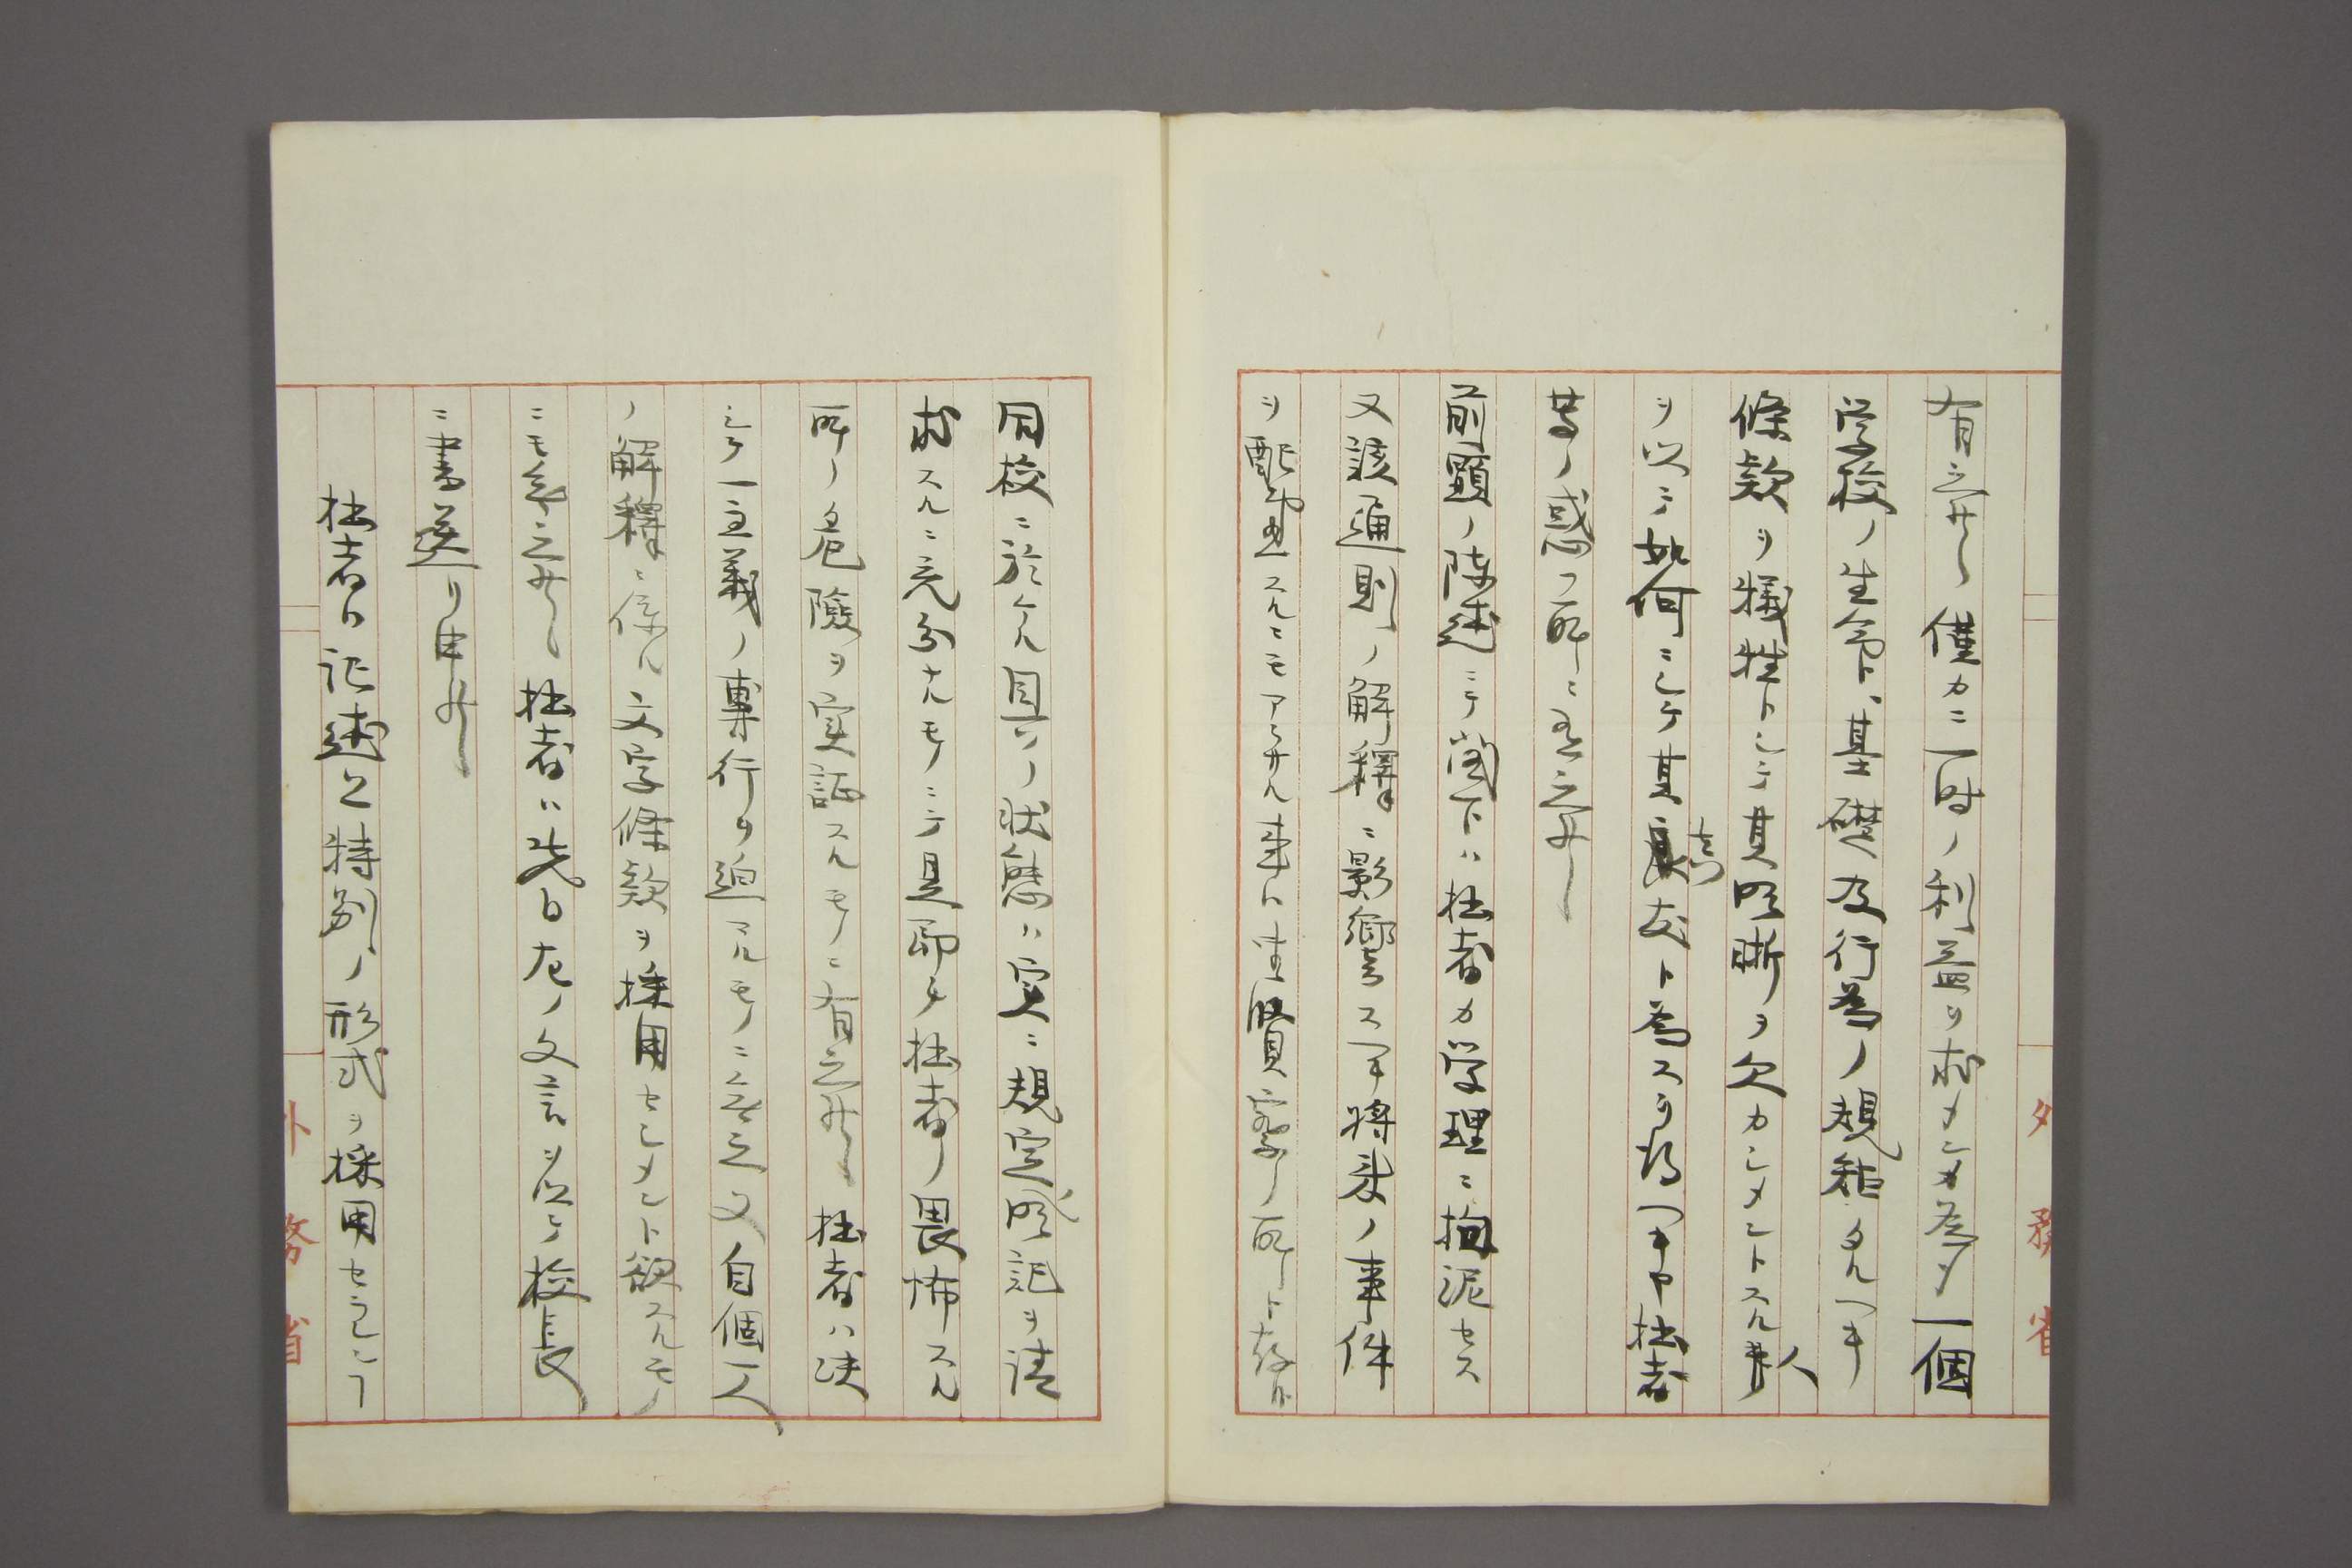 有之候 僅カニ一時ノ利益ヲ求メンカ為メ一個
学校ノ生命ト基礎及行為ノ規矩タルヘキ
條欵ヲ犠牲トシテ其明晰ヲ欠カシメントスル人
ヲ以テ如何ニシテ其真友ト為スヲ得ヘキヤ拙者
等ノ惑フ所ニ有之候
前顕ノ陳述ニテ閣下ハ拙者カ学理ニ拘泥セス
又該通則ノ解釋ニ影響スヘキ将来ノ事件
ヲ配慮スルニモアラサル事ハ御賢察ノ所ト存候
同校ニ於ケル目下ノ状態ハ実ニ規定明記ヲ請
求スルニ充分ナルモノニテ是即チ拙者ノ畏怖スル
所ノ危険ヲ実証スルモノニ有之候 拙者ハ決
シテ一主義ノ専行ヲ迫ルモノニ無之又自個一人
ノ解釋ニ係ル文字條欵ヲ採用セシメント欲スルモノ
ニモ無之候 拙者ハ先日左ノ文言ヲ以テ校長
ニ書送リ申候
拙者ハ記述上特別ノ形式ヲ採用セラレンコ
外務省
外務省